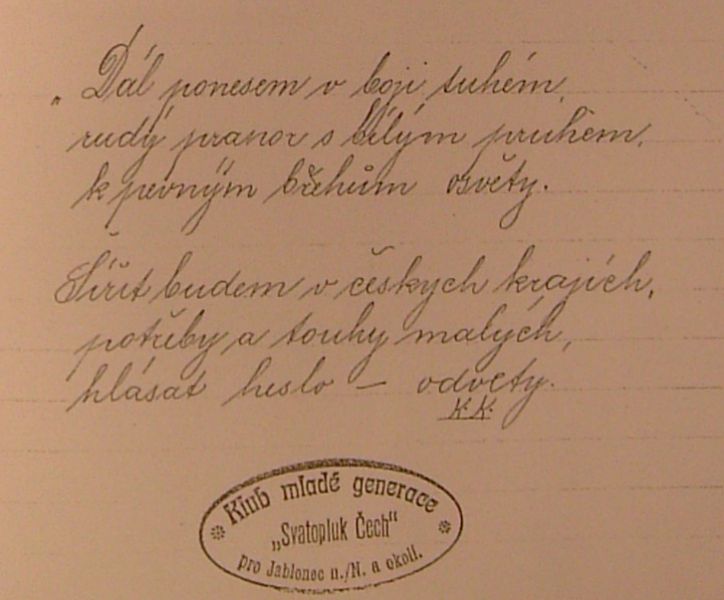 „Dál ponesem v boji tuhém,
rudý prapor s bílým pruhem,
k pevným břehům osvěty.
Šířit budem v českych krajích,
potřeby a touhy malých,
hlásat heslo — odvety.
K.K.
Klub mladé generace
„Svatopluk Čech“
pro Jablonec n./N. a okolí.